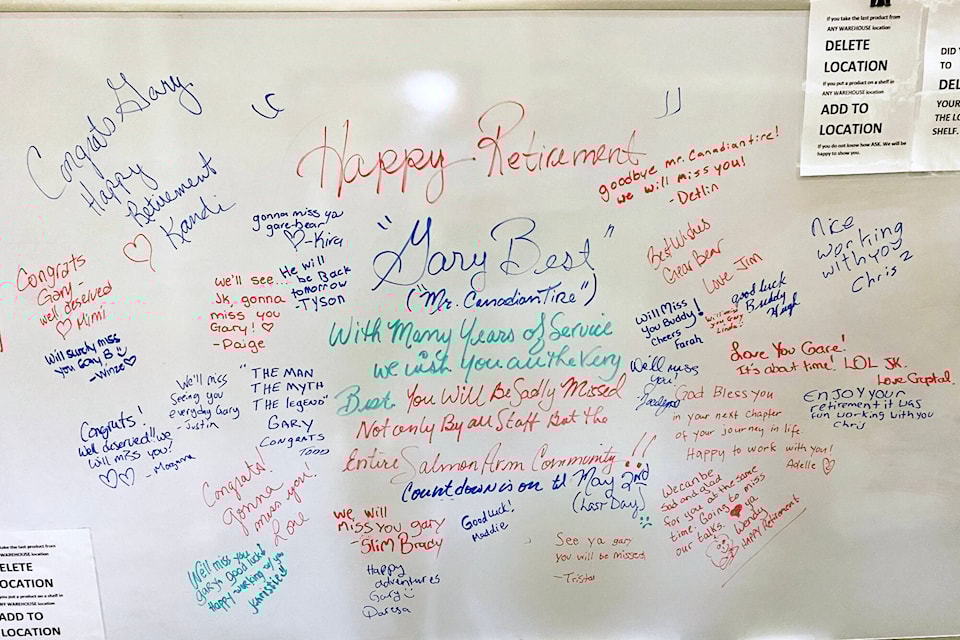 Congrats Gary
Happy
Retirement
Kandi
Happy Retirement
"Gary Best"
("Mr. Canadian Tire")
With Many Years of Service
we wish You all the Very
Best. You Will Be Sadly Missed
Not only By all Staff But the
Entire Salmon Arm Community!!
Countdown is on til May 2nd
(Last Day)
goodbye mr. Canadian tire!
we will miss you!
- Detlin
gonna miss ya
gare-bear
- Kira
He will
be Back
tomorrow
- Tyson
we'll see...
JK, gonna
miss you
Gary!
- Paige
Congrats
Gary -
well deserved
Mimi
Will surely miss
you Gary, B
- Winze
We'll miss
seeing you
everyday Gary
- Justin
"THE MAN
THE MYTH
THE legend"
GARY
CONGRATS
TODD
Congrats!
Well deserved!! we
will miss you!
- Morganna
Congrats!
gonna
miss you!
Love
We'll miss you
Gary! good luck!
Happy working w/ you
Khristie!!
we will
miss you gary
- Slim Brady
Happy
adventures
Gary
Daresa
Good luck!
Maddie
See ya gary
you will be missed!
- Trista
Best Wishes
Gaer Bear
Love Jim
Will Miss
You Buddy!
Cheers
Farah
Will miss
you Gary
Linda
good luck
Buddy
Hugh
Nice
working
with you
Chris 2
We'll miss
you!
Love You Gare!
It's about time! LOL JK.
Love Crystal.
ENJOY your
retirement it was
fun working with you
Chris
God Bless you
in your next chapter
of your journey in life.
Happy to work with you!
Adelle
We can be
sad and glad
for you at the same
time. Going to miss
our talks. ya
Wendy
Happy Retirement
If you take the last product from
ANY WAREHOUSE location
DELETE
LOCATION
If you put a product on a shelf in
ANY WAREHOUSE location
ADD TO
LOCATION
If you do not know how ASK. We will be
happy to show you.
DID
TO
DEL
YOUR
THE LO
SHELF.
take the last product from
WAREHOUSE location
ELETE
OCATION
you put a product on a shelf in
WAREHOUSE location
ADD TO
LOCATION